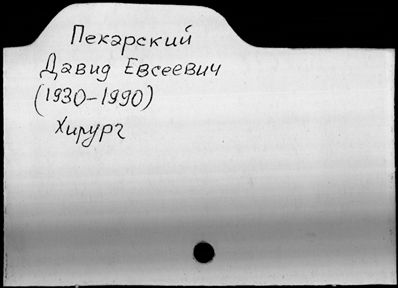 Пекарский
Давид Евсеевич
(1930-1990)
Хирург